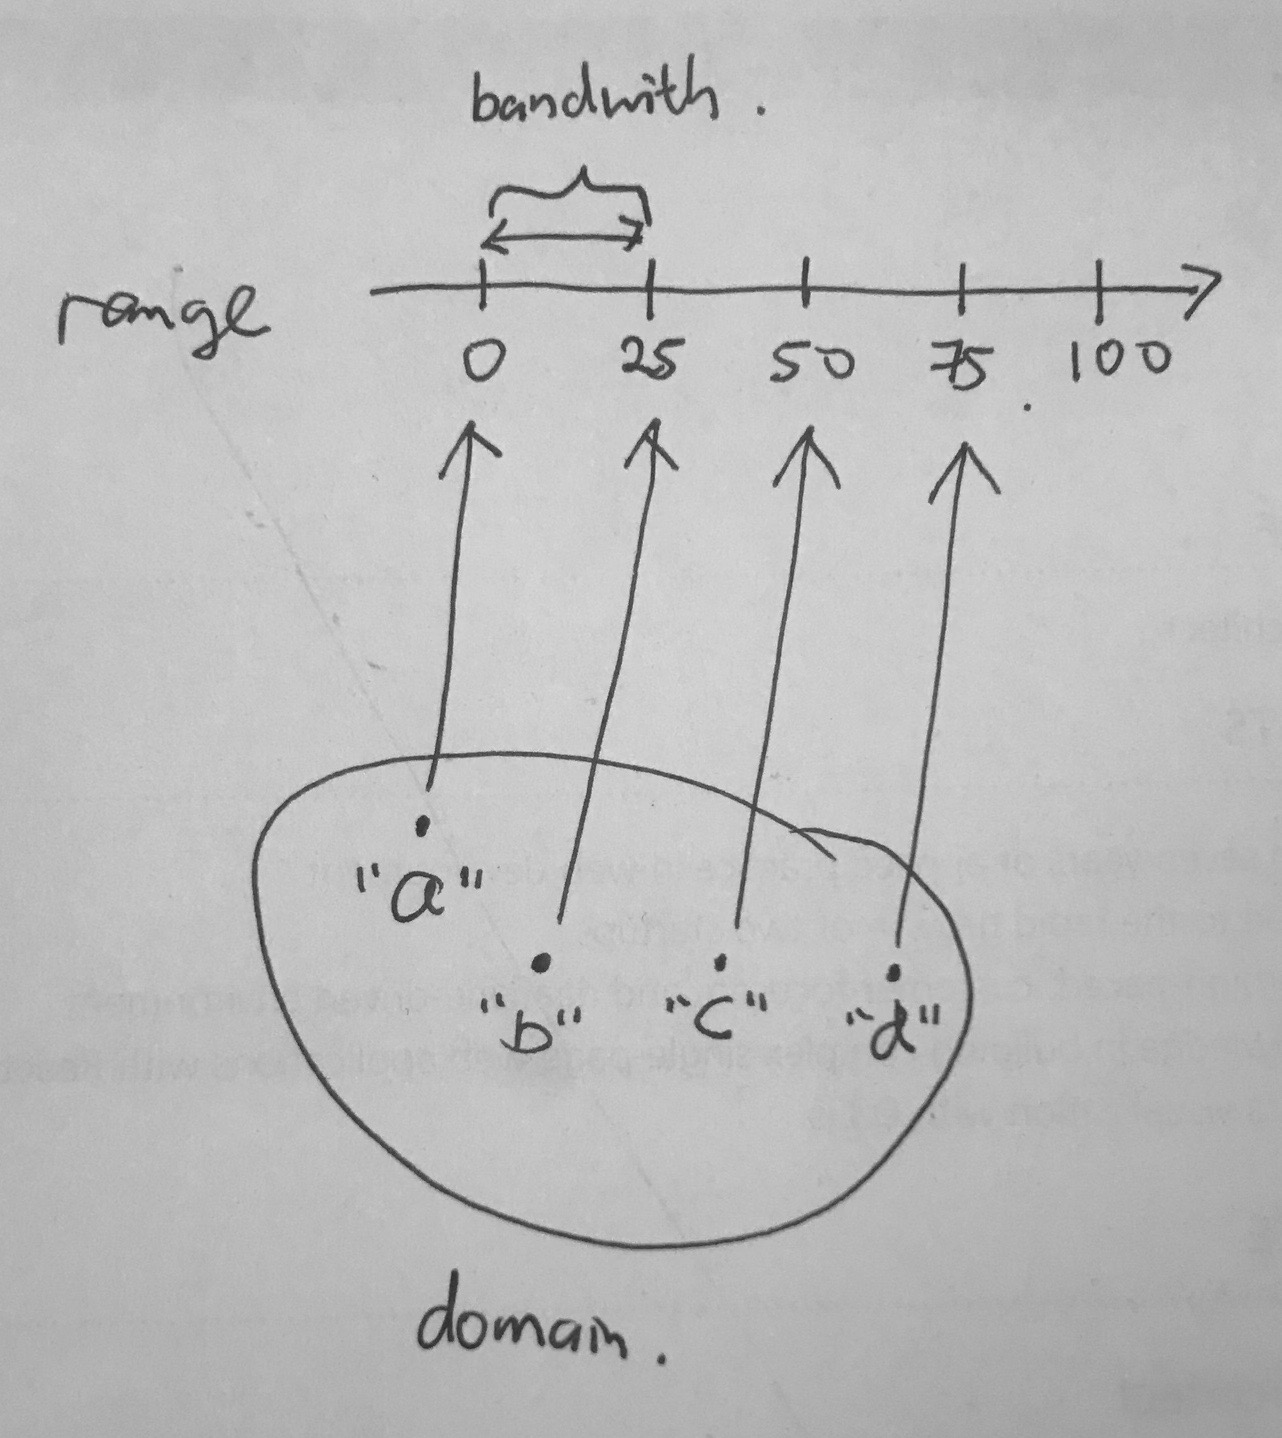 bandwith.
range
0 25 50 75 100
"a"
"b" "c" "d"
domain.